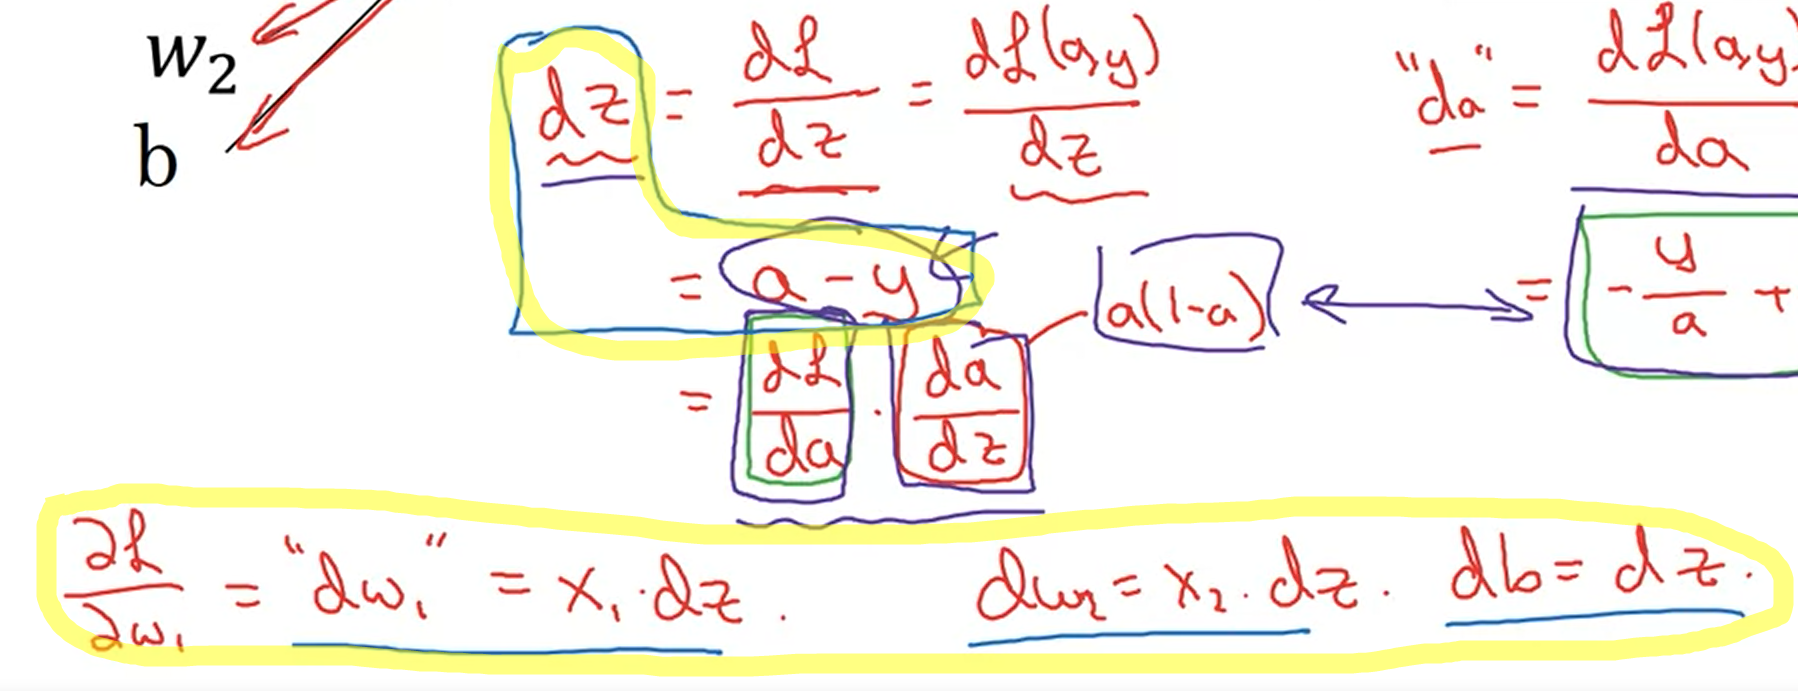 w₂
b
dz = dL/dz = dL(a,y)/dz
"da" = dL(a,y)/da
= a - y
a(1-a)
= -y/a +
= dL/da · da/dz
∂L/∂w₁ = "dw₁" = x₁·dz. dw₂ = x₂·dz. db = dz.